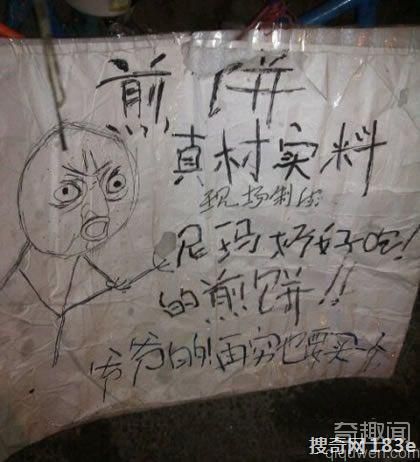 煎饼
真材实料
现场制作
尼玛好好吃!
的煎饼!!
爷爷的!再穷也要买一个
搜奇网183e
奇趣闻
qiquwen.com